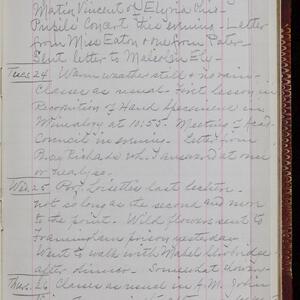 Matin Vincent or Elyria Chis-
Pupils' Concert this evening. Letter
from Miss Eaton & one from Pater.
Sent letter to Malcolm Ely.
Tues. 24 Warm weather still & no rain.
Classes as usual. First lesson in
Recognition of Hand Specimens in
Mineralogy at 10:55. Meeting of Acad.
Council in evening. Letter from
wh. I answered at once
or nearly so.
Wed. 25 Prof. last lecture.
not so long as the second and more
to the point. Wild flowers sent to
Framingham prison yesterday.
Went to walk with Mabel
after dinner. Somewhat
Thurs. 26 Classes as usual in A.M. John